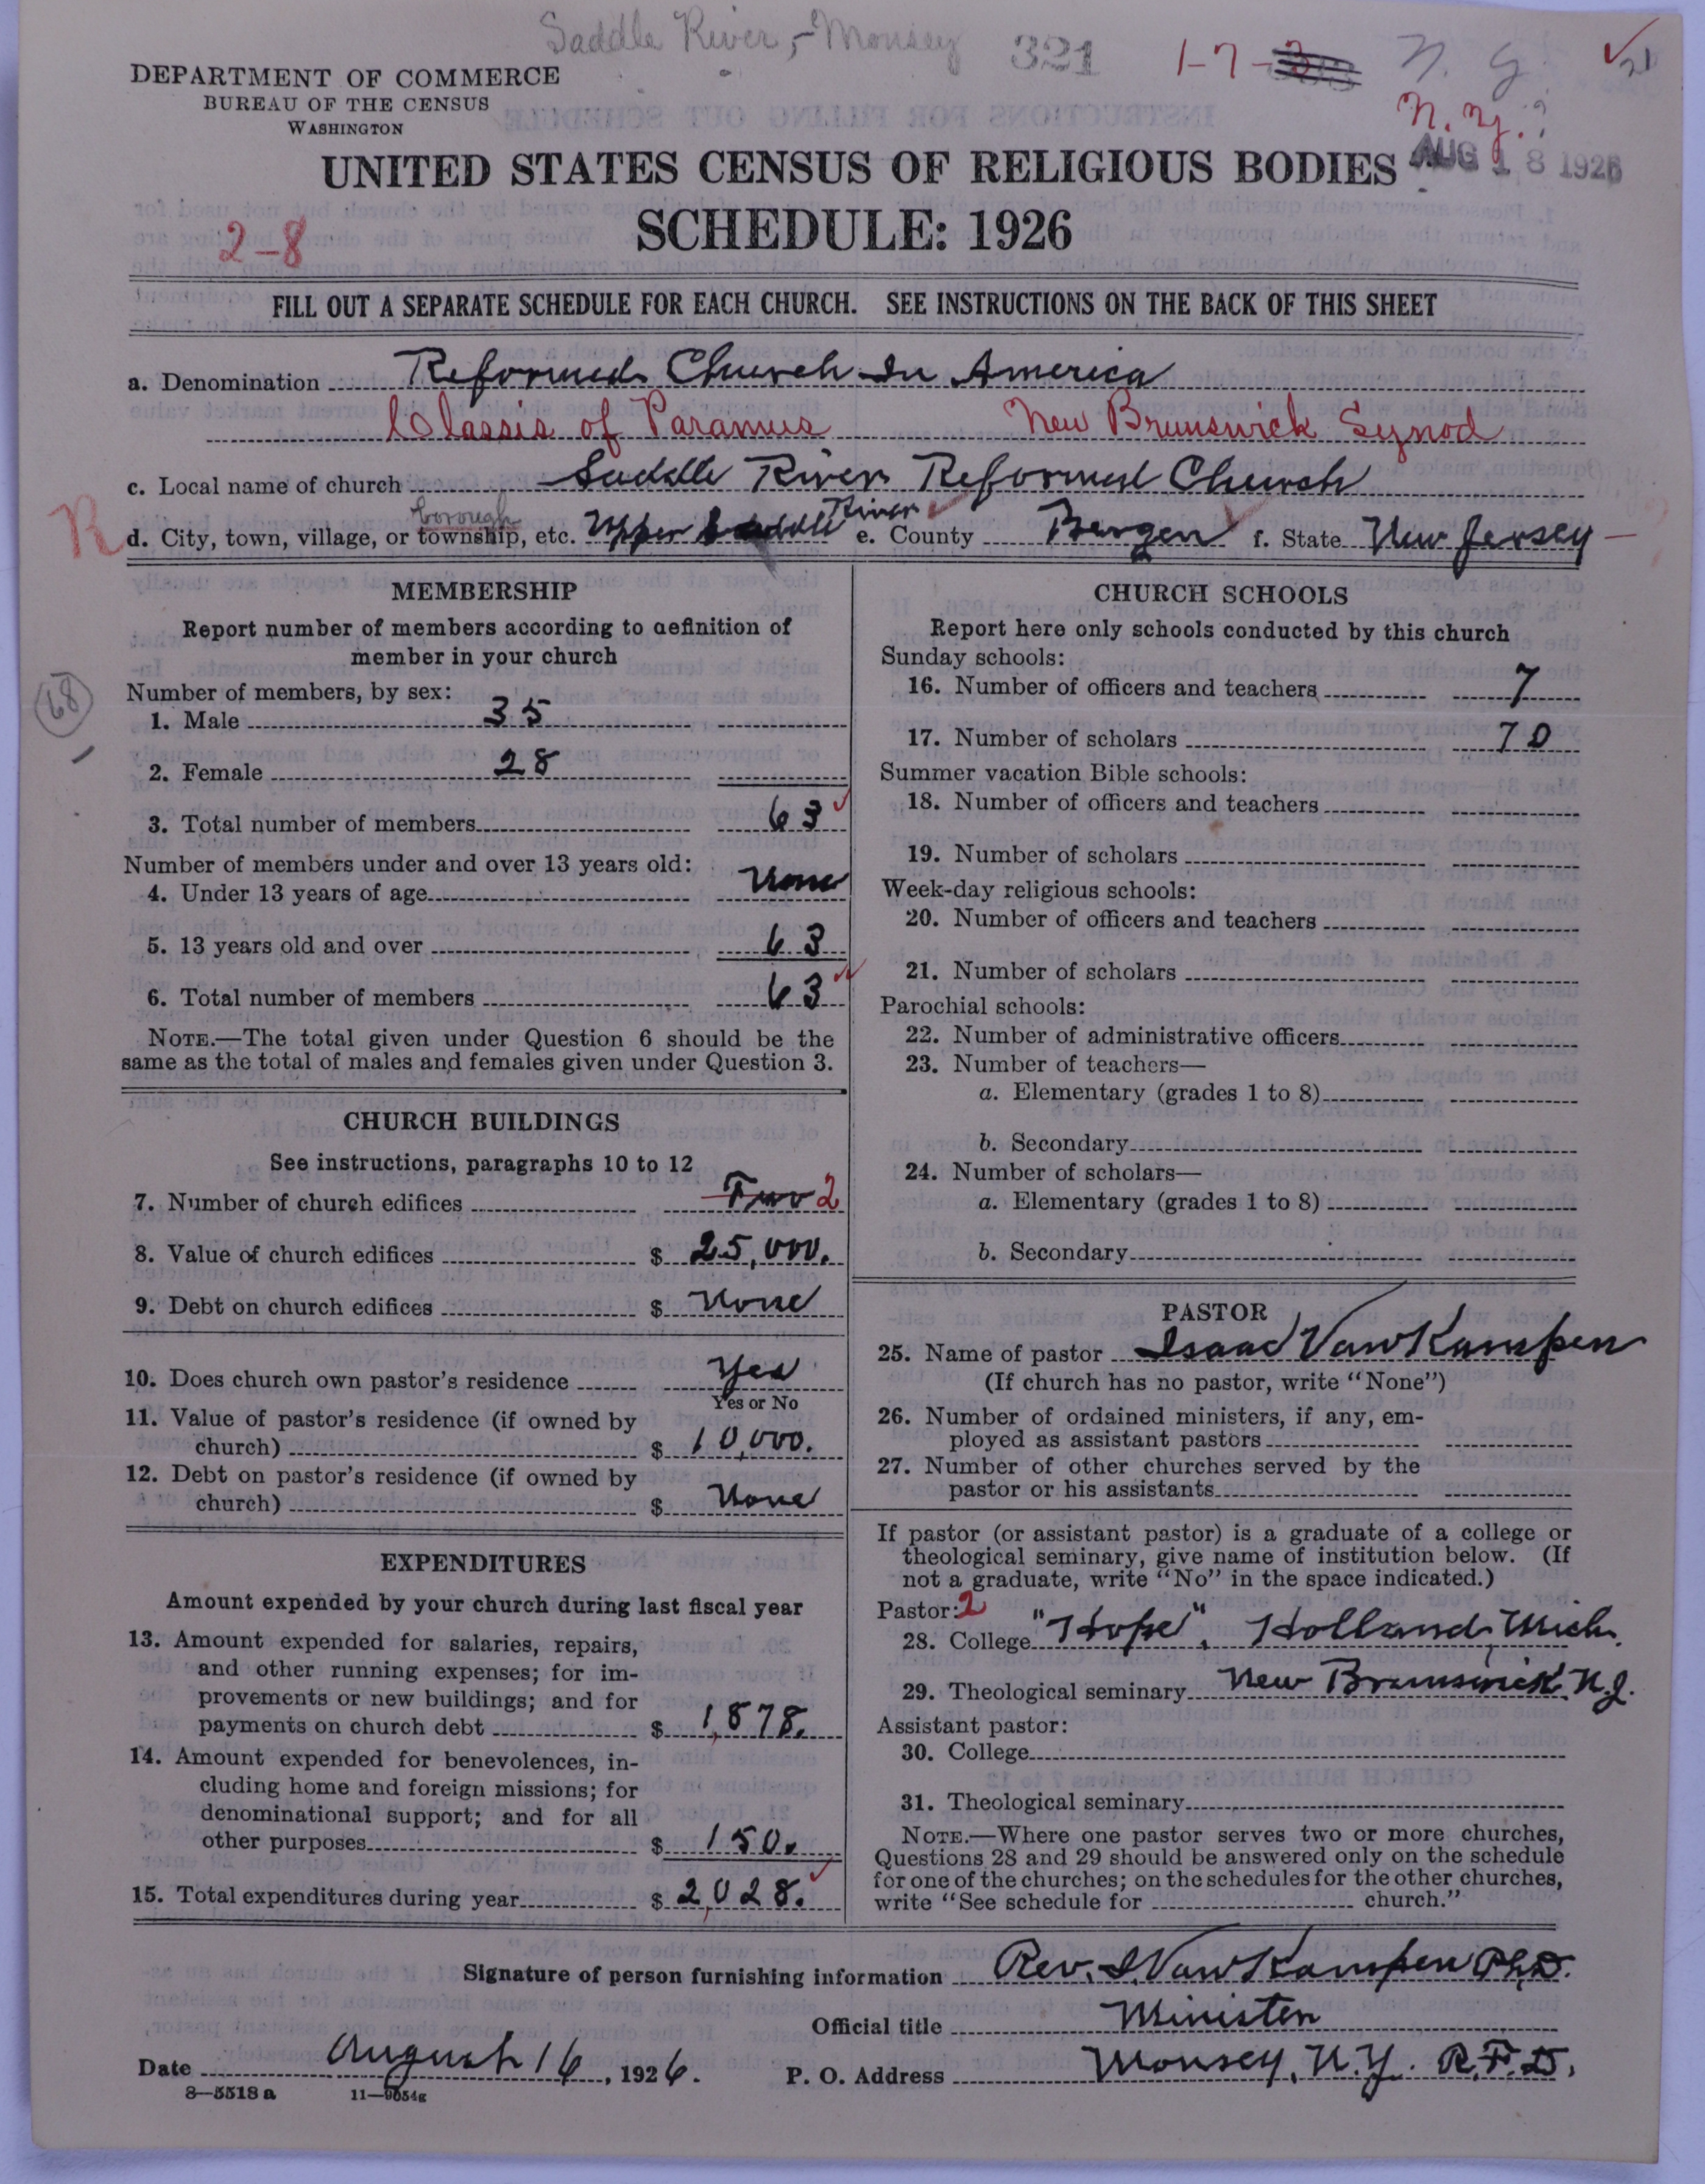 Saddle River, - Monsey 321 1-7- N. J.
N. Y. ?
DEPARTMENT OF COMMERCE
BUREAU OF THE CENSUS
WASHINGTON
AUG 18 1926
UNITED STATES CENSUS OF RELIGIOUS BODIES
SCHEDULE: 1926
2-8
FILL OUT A SEPARATE SCHEDULE FOR EACH CHURCH. SEE INSTRUCTIONS ON THE BACK OF THIS SHEET
a. Denomination Reformed Church In America
Classis of Paramus New Brunswick Synod
c. Local name of church Saddle River Reformed Church
borough
R d. City, town, village, or township, etc. Upper Saddle River e. County Bergen f. State New Jersey
MEMBERSHIP
Report number of members according to definition of
member in your church
68
Number of members, by sex:
1. Male 35
2. Female 28
3. Total number of members 63
Number of members under and over 13 years old:
4. Under 13 years of age None
5. 13 years old and over 63
6. Total number of members 63
NOTE.—The total given under Question 6 should be the
same as the total of males and females given under Question 3.
CHURCH BUILDINGS
See instructions, paragraphs 10 to 12
7. Number of church edifices Two 2
8. Value of church edifices $ 25,000.
9. Debt on church edifices $ None
10. Does church own pastor's residence Yes
Yes or No
11. Value of pastor's residence (if owned by
church) $ 10,000.
12. Debt on pastor's residence (if owned by
church) $ None
EXPENDITURES
Amount expended by your church during last fiscal year
13. Amount expended for salaries, repairs,
and other running expenses; for im-
provements or new buildings; and for
payments on church debt $ 1,878.
14. Amount expended for benevolences, in-
cluding home and foreign missions; for
denominational support; and for all
other purposes $ 150.
15. Total expenditures during year $ 2,028.
CHURCH SCHOOLS
Report here only schools conducted by this church
Sunday schools:
16. Number of officers and teachers 7
17. Number of scholars 70
Summer vacation Bible schools:
18. Number of officers and teachers
19. Number of scholars
Week-day religious schools:
20. Number of officers and teachers
21. Number of scholars
Parochial schools:
22. Number of administrative officers
23. Number of teachers—
a. Elementary (grades 1 to 8)
b. Secondary
24. Number of scholars—
a. Elementary (grades 1 to 8)
b. Secondary
PASTOR
25. Name of pastor Isaac Van Kampen
(If church has no pastor, write "None")
26. Number of ordained ministers, if any, em-
ployed as assistant pastors
27. Number of other churches served by the
pastor or his assistants
If pastor (or assistant pastor) is a graduate of a college or
theological seminary, give name of institution below. (If
not a graduate, write "No" in the space indicated.)
Pastor: 2
28. College "Hope", Holland, Mich.
29. Theological seminary New Brunswick N.J.
Assistant pastor:
30. College
31. Theological seminary
NOTE.—Where one pastor serves two or more churches,
Questions 28 and 29 should be answered only on the schedule
for one of the churches; on the schedules for the other churches,
write "See schedule for church."
Signature of person furnishing information Rev. I. Van Kampen Ph.D.
Official title Minister
Date August 16, 1926. P. O. Address Monsey, N.Y. R.F.D.
8—5518 a 11—9054g